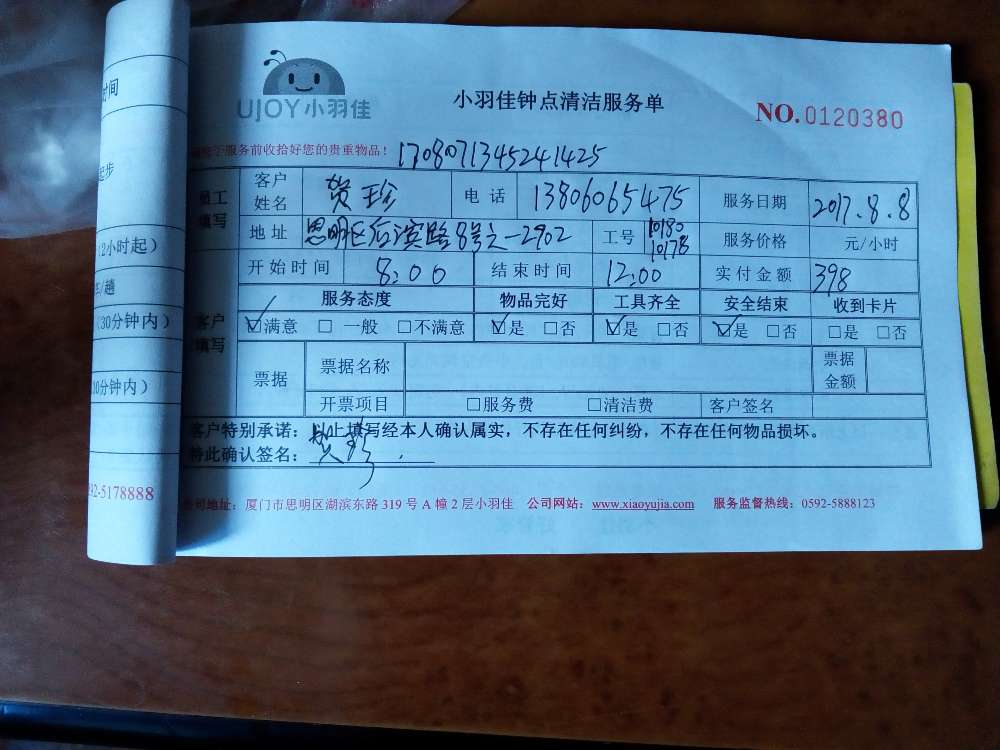 时间
起步
（2小时起）
生/趟
（30分钟内）
30分钟内）
92-5178888
UJOY小羽佳
小羽佳钟点清洁服务单
NO.0120380
于服务前收拾好您的贵重物品！ 1708071345241425
员工填写 客户姓名 贺珍 电话 13806065475 服务日期 2017.8.8
地址 思明区后滨路8号之一2902 工号 10180 10178 服务价格 元/小时
开始时间 8:00 结束时间 12:00 实付金额 398
客户填写 服务态度 物品完好 工具齐全 安全结束 收到卡片
☑满意 □ 一般 □不满意 ☑是 □否 ☑是 □否 ☑是 □否 □是 □否
票据 票据名称 票据金额
开票项目 □服务费 □清洁费 客户签名
客户特别承诺：以上填写经本人确认属实，不存在任何纠纷，不存在任何物品损坏。
特此确认签名：
公司地址：厦门市思明区湖滨东路 319 号 A 幢 2 层小羽佳 公司网站：www.xiaoyujia.com 服务监督热线：0592-5888123